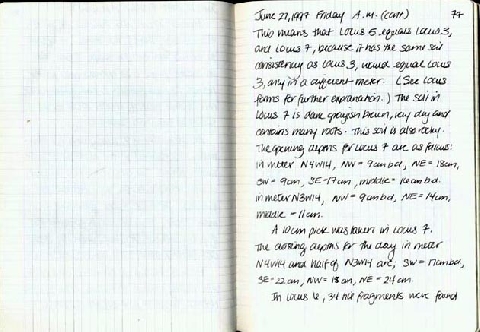 June 27, 1997 Friday A.M. (cont) 77
This means that Locus 5 equals Locus 3,
and Locus 7, because it has the same soil
consistency as Locus 3, would equal Locus
3, only in a different meter. (See locus
forms for further explanation.) The soil in
Locus 7 is dark grayish brown, very dry and
contains many roots. This soil is also rocky.
The opening depths for Locus 7 are as follows:
in meter N4W14, NW = 9cmbd, NE = 13cm,
SW = 9cm, SE = 17cm, middle = 16cmbd.
in meter N3W14, NW = 9cmbd, NE = 14cm,
middle = 11cm.
A 10cm pick was taken in Locus 7.
The closing depths for the day in meter
N4W14 and half of N3W14 are, SW = 17cmbd,
SE = 22cm, NW = 18cm, NE = 24cm.
In Locus 6, 34 fragments were found